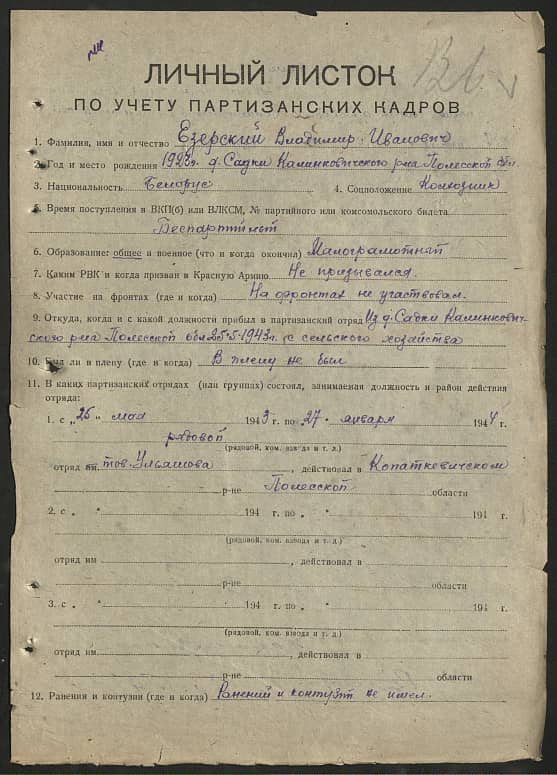 ЛИЧНЫЙ ЛИСТОК
ПО УЧЕТУ ПАРТИЗАНСКИХ КАДРОВ
1. Фамилия, имя и отчество Езерский Владимир Иванович
2. Год и место рождения 1923г. д. Садки Калинковичского р-на Полесской обл.
3. Национальность Белорус 4. Соцположение Колхозник
5. Время поступления в ВКП(б) или ВЛКСМ, № партийного или комсомольского билета
Беспартийный
6. Образование: общее и военное (что и когда окончил) Малограмотный
7. Каким РВК и когда призван в Красную Армию Не призывался.
8. Участие на фронтах (где и когда) На фронтах не участвовал.
9. Откуда, когда и с какой должности прибыл в партизанский отряд Из д. Садки Калинкович-
ского р-на Полесской обл 25-5-1943г. с сельского хозяйства
10. Был ли в плену (где и когда) В плену не был
11. В каких партизанских отрядах (или группах) состоял, занимаемая должность и район действия
отряда:
1. с „25 " мая 1943 г. по „27 " января 1944 г.
рядовой
(рядовой, ком. взвода и т. д.)
отряд им. тов. Ульяшова, действовал в Копаткевичском
р-не Полесской области
2. с „ " 194 г. по „ " 194 г.
(рядовой, ком. взвода и т. д.)
отряд им , действовал в
р-не области
3. с „ " 194 г. по „ " 194 г.
(рядовой, ком. взвода и т. д.)
отряд им. , действовал в
р-не области
12. Ранения и контузии (где и когда) Ранений и контузий не имел.